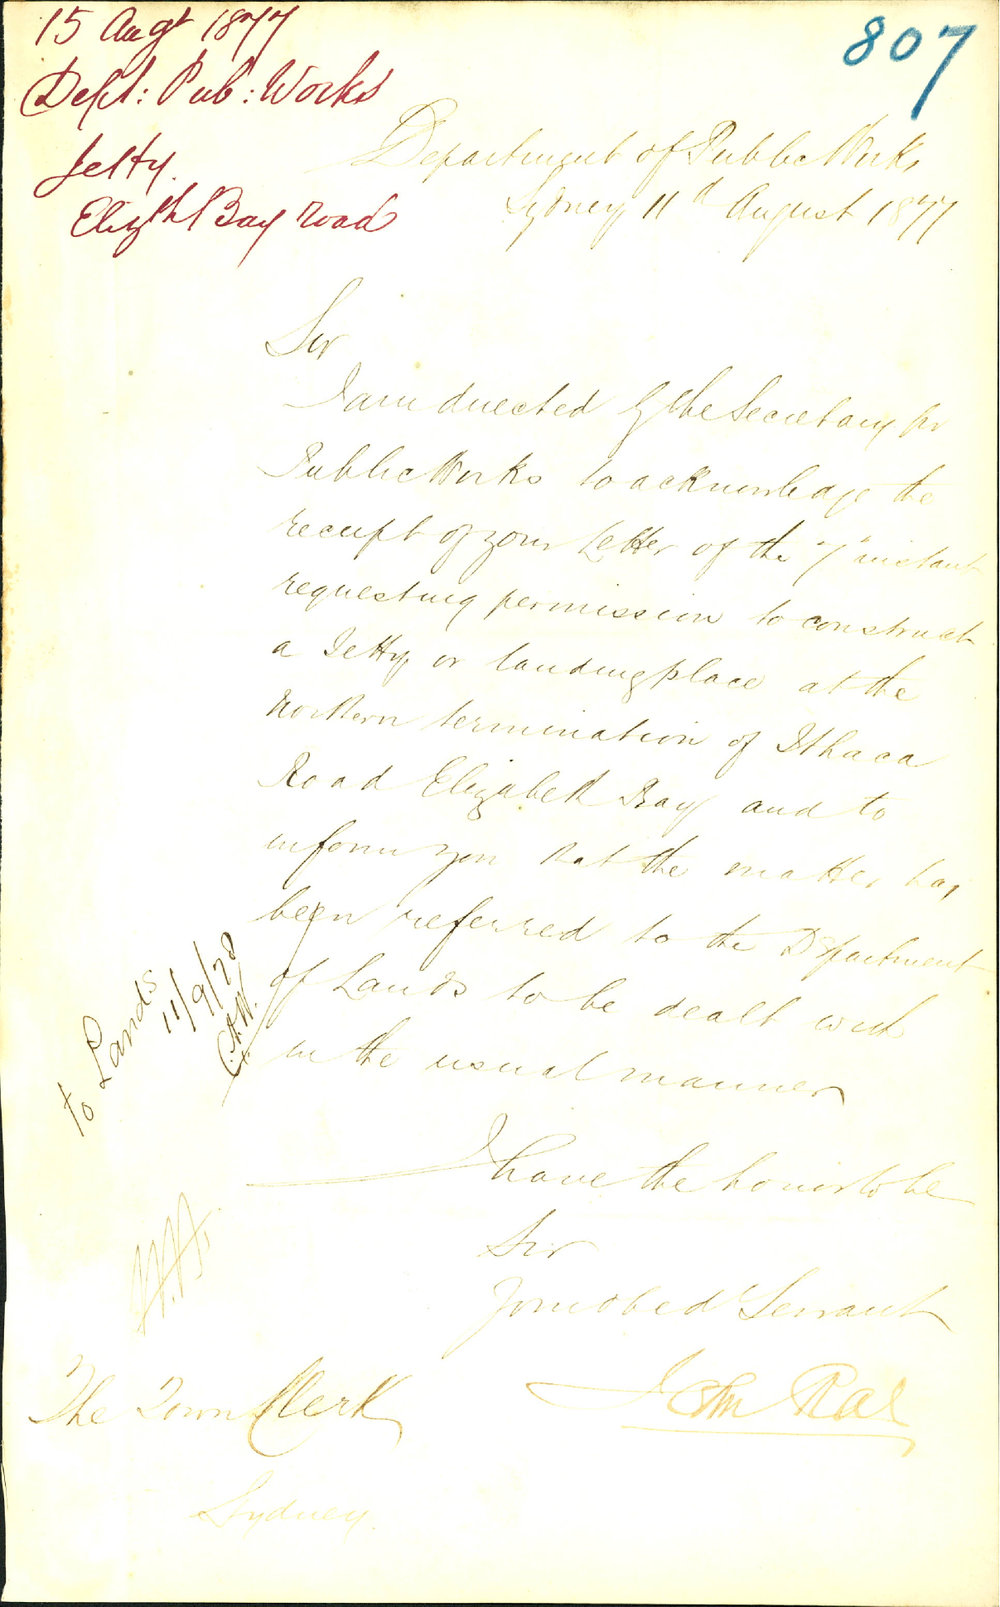 15 Augt 1877
Dept: Pub: Works
Jetty.
Elizth Bay road
807
Department of Public Works
Sydney 11th August 1877
Sir
I am directed by the Secretary for
Public Works to acknowledge the
receipt of your Letter of the "7" instant
requesting permission to construct
a Jetty or landing place at the
Northern termination of Ithaca
Road Elizabeth Bay and to
inform you that the matter has
been referred to the Department
of Lands to be dealt with
in the usual manner
I have the honor to be
Sir
Your obed Servant
John Rae
The Town Clerk
Sydney.
To Lands
11/9/78